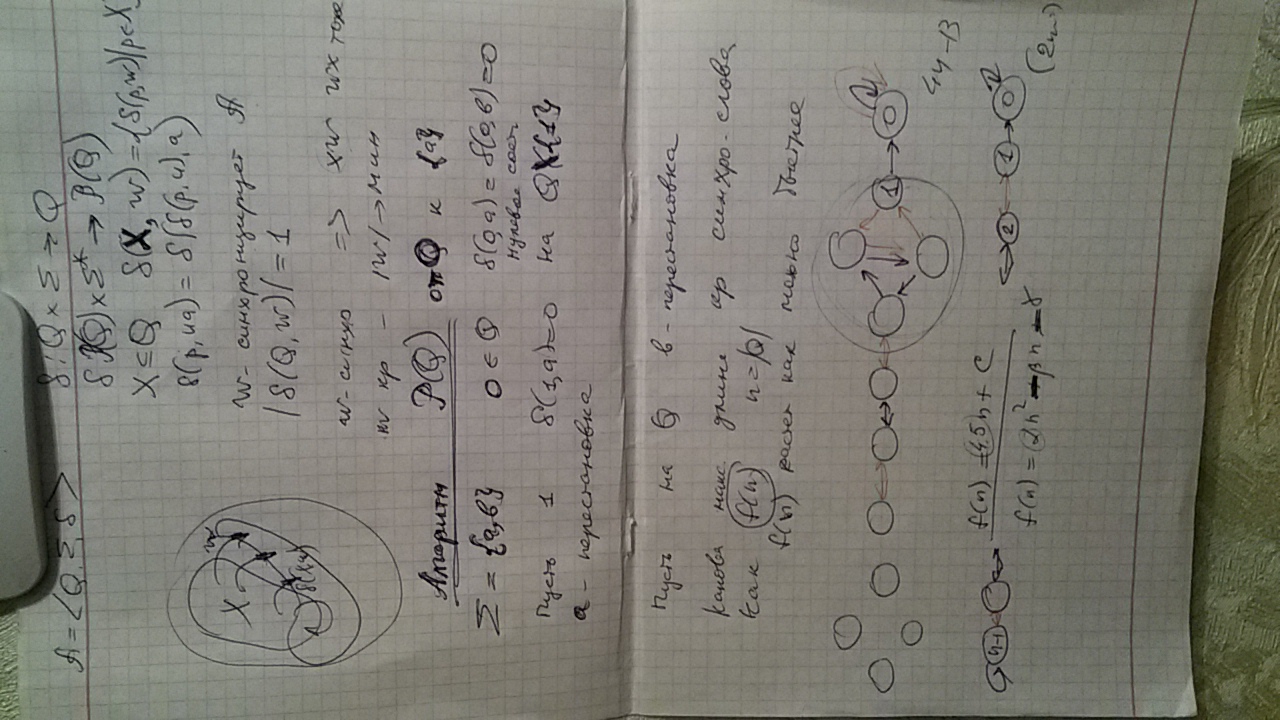 A = ⟨Q, Σ, δ⟩ δ: Q × Σ → Q
δ P(Q) × Σ* → P(Q)
X ⊆ Q δ(X, w) = {δ(p, w) | p ∈ X
δ(p, ua) = δ(δ(p, u), a)
X w
w - синхронизирует A
|δ(Q, w)| = 1
w - синхр => xw wx тоже
w кр - |w| → мин
Алгоритм P(Q) от Q к {a}
Σ = {a, b} 0 ∈ Q δ(0, a) = δ(0, b) = 0
нулевое сост
Пусть 1 δ(1, a) = 0 на Q\{1}
a - перестановка
Пусть на Q b - перестановка
Какова макс. длина кр синхро-слова
как f(n) n = |Q|
f(n) растет как можно быстрее
1 0
4n-13
n-1 f(n) = 4.5n + c 2 1 0
f(n) = αn² - βn - γ